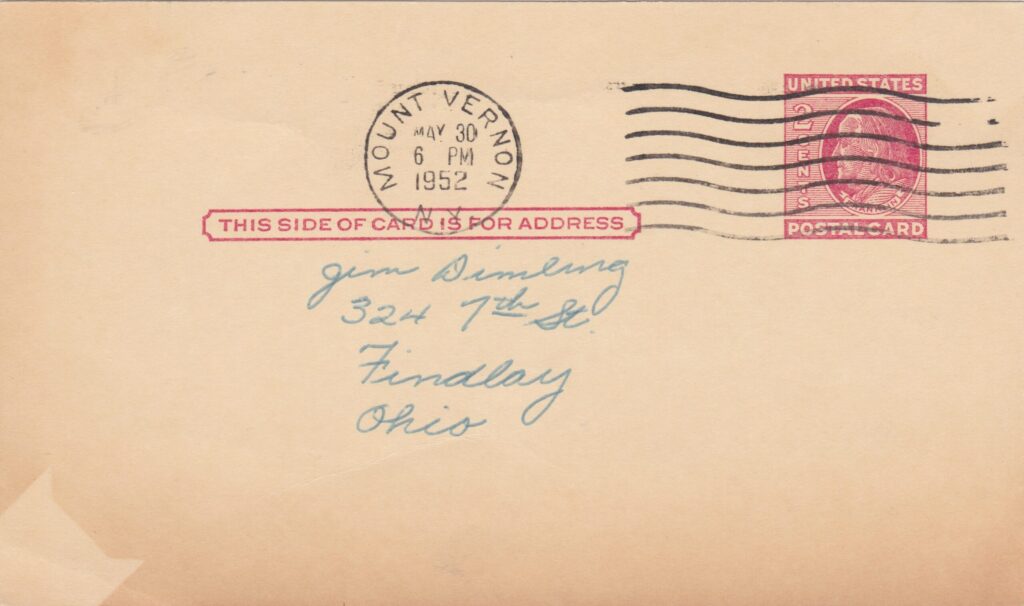 MOUNT VERNON
MAY 30
6 PM
1952
N.Y.
UNITED STATES
2 CENTS
FRANKLIN
POSTAL CARD
THIS SIDE OF CARD IS FOR ADDRESS
Jim Dimling
324 7th St.
Findlay
Ohio